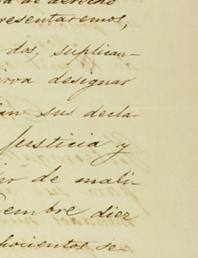 de derecho
presentaremos,
dos, suplican-
designar
sus decla-
Justicia y
de mali-
diez
ochocientos se-